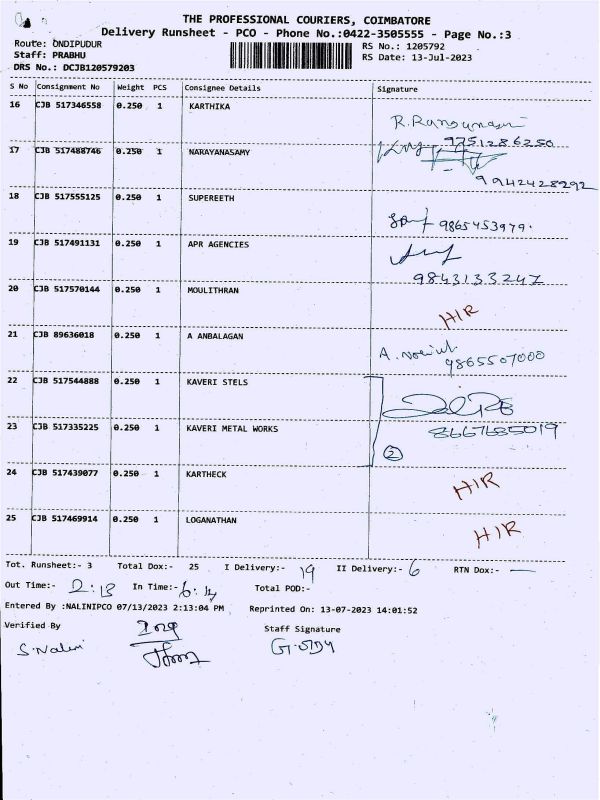 THE PROFESSIONAL COURIERS, COIMBATORE
Delivery Runsheet - PCO - Phone No.:0422-3505555 - Page No.:3
Route: ONDIPUDUR RS No.: 1205792
Staff: PRABHU RS Date: 13-Jul-2023
DRS No.: DCJB120579203
S No Consignment No Weight PCS Consignee Details Signature
16 CJB 517346558 0.250 1 KARTHIKA
9751286250
17 CJB 517488746 0.250 1 NARAYANASAMY
9942428292
18 CJB 517555125 0.250 1 SUPEREETH
9865453979.
19 CJB 517491131 0.250 1 APR AGENCIES
9843133247
20 CJB 517570144 0.250 1 MOULITHRAN
HIR
21 CJB 89636018 0.250 1 A ANBALAGAN
9865507000
22 CJB 517544888 0.250 1 KAVERI STELS
23 CJB 517335225 0.250 1 KAVERI METAL WORKS 8667685019
2
24 CJB 517439077 0.250 1 KARTHECK HIR
25 CJB 517469914 0.250 1 LOGANATHAN HIR
Tot. Runsheet:- 3 Total Dox:- 25 I Delivery:- 19 II Delivery:- 6 RTN Dox:- —
Out Time:- 2:18 In Time:- Total POD:-
Entered By :NALINIPCO 07/13/2023 2:13:04 PM Reprinted On: 13-07-2023 14:01:52
Verified By Staff Signature
S.Nalini